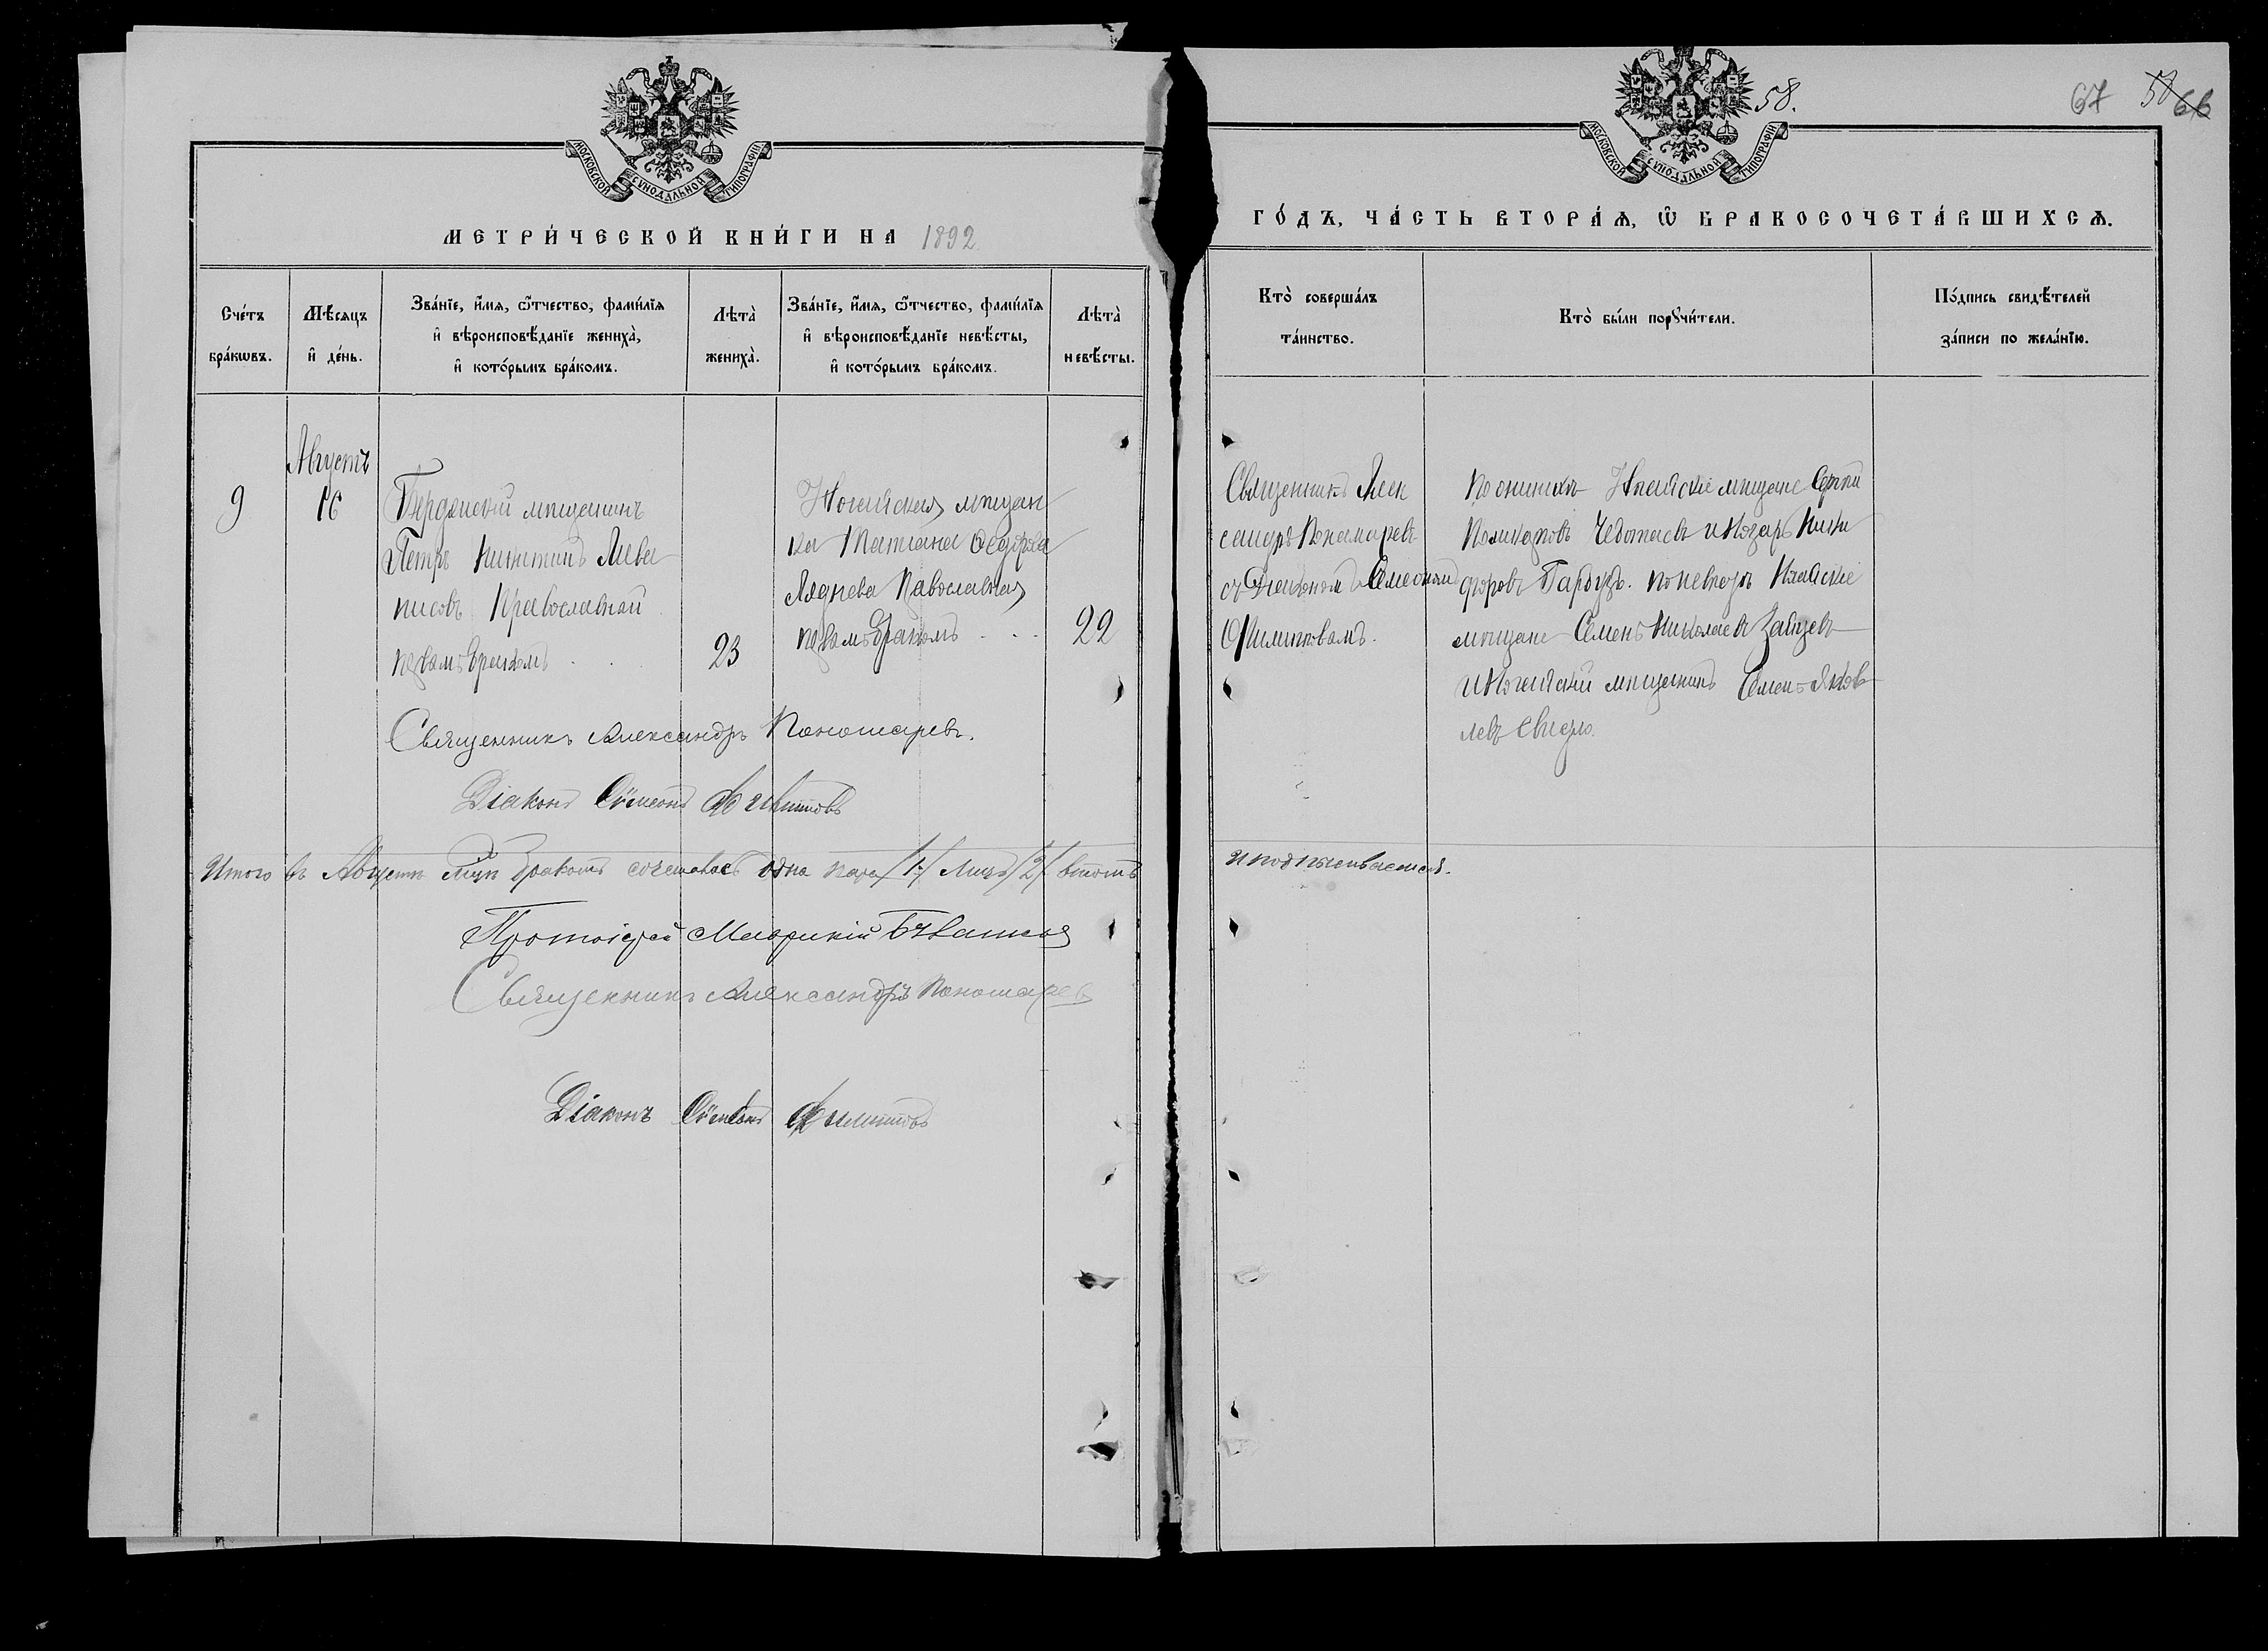 МОСКОВСКОЙ СѴНОДАЛЬНОЙ ТИПОГРАФІИ
МЕТРИ́ЧЕСКОЙ КНИ́ГИ НА 1892
Сче́тъ бра́кѡвъ.
Мѣ́сяцъ и҆ де́нь.
Зва́нїе, и҆́мя, ѻ҆́тчество, фами́лїя
и҆ вѣроисповѣ́данїе жениха̀,
и҆ кото́рымъ бра́комъ.
Лѣта̀ жениха̀.
Зва́нїе, и҆́мя, ѻ҆́тчество, фами́лїя
и҆ вѣроисповѣ́данїе невѣ́сты,
и҆ кото́рымъ бра́комъ.
Лѣта̀ невѣ́сты.
9
Августъ
16
Бердянскій мѣщанинъ
Петръ Никитинъ Лива
нисовъ Православный
первымъ бракомъ
23
Ногайская мѣщан
ка Татіана Ѳедорова
Ляднева Павославная
первымъ бракомъ
22
Священникъ Александръ Пономаревъ.
Діаконъ Сѵмеонъ Филиповъ
Итого въ Августѣ мѣсяцѣ бракомъ сочеталась одна пара /1/ лицъ /2/ въ томъ
Протоіерей Маврикій
Священникъ Александръ Пономаревъ
Діаконъ Сѵмеонъ Филиповъ
58.
67 58 66
МОСКОВСКОЙ СѴНОДАЛЬНОЙ ТИПОГРАФІИ
ГО́ДЪ, ЧА́СТЬ ВТОРА́Ѧ, Ѡ҆ БРАКОСОЧЕТА́ВШИХСѦ.
Кто̀ соверша́лъ
та́инство.
Кто̀ бы́ли порꙋчи́тели.
По́дпись свидѣ́телей
за́писи по жела́нїю.
Священникъ Алек
сандръ Пономаревъ
съ Діакономъ Симеоном
Филиповамъ.
По женихѣ Ногайскіе мѣщане Сергѣй
Поликарповъ Чеботаевъ и Назаръ Ники
форовъ Гарбузъ. по невѣстѣ Ногайскіе
мѣщане Семенъ Николаевъ Зайцев
и Ногайскій мѣщанинъ Семенъ Яков
левъ
и подписываемся.